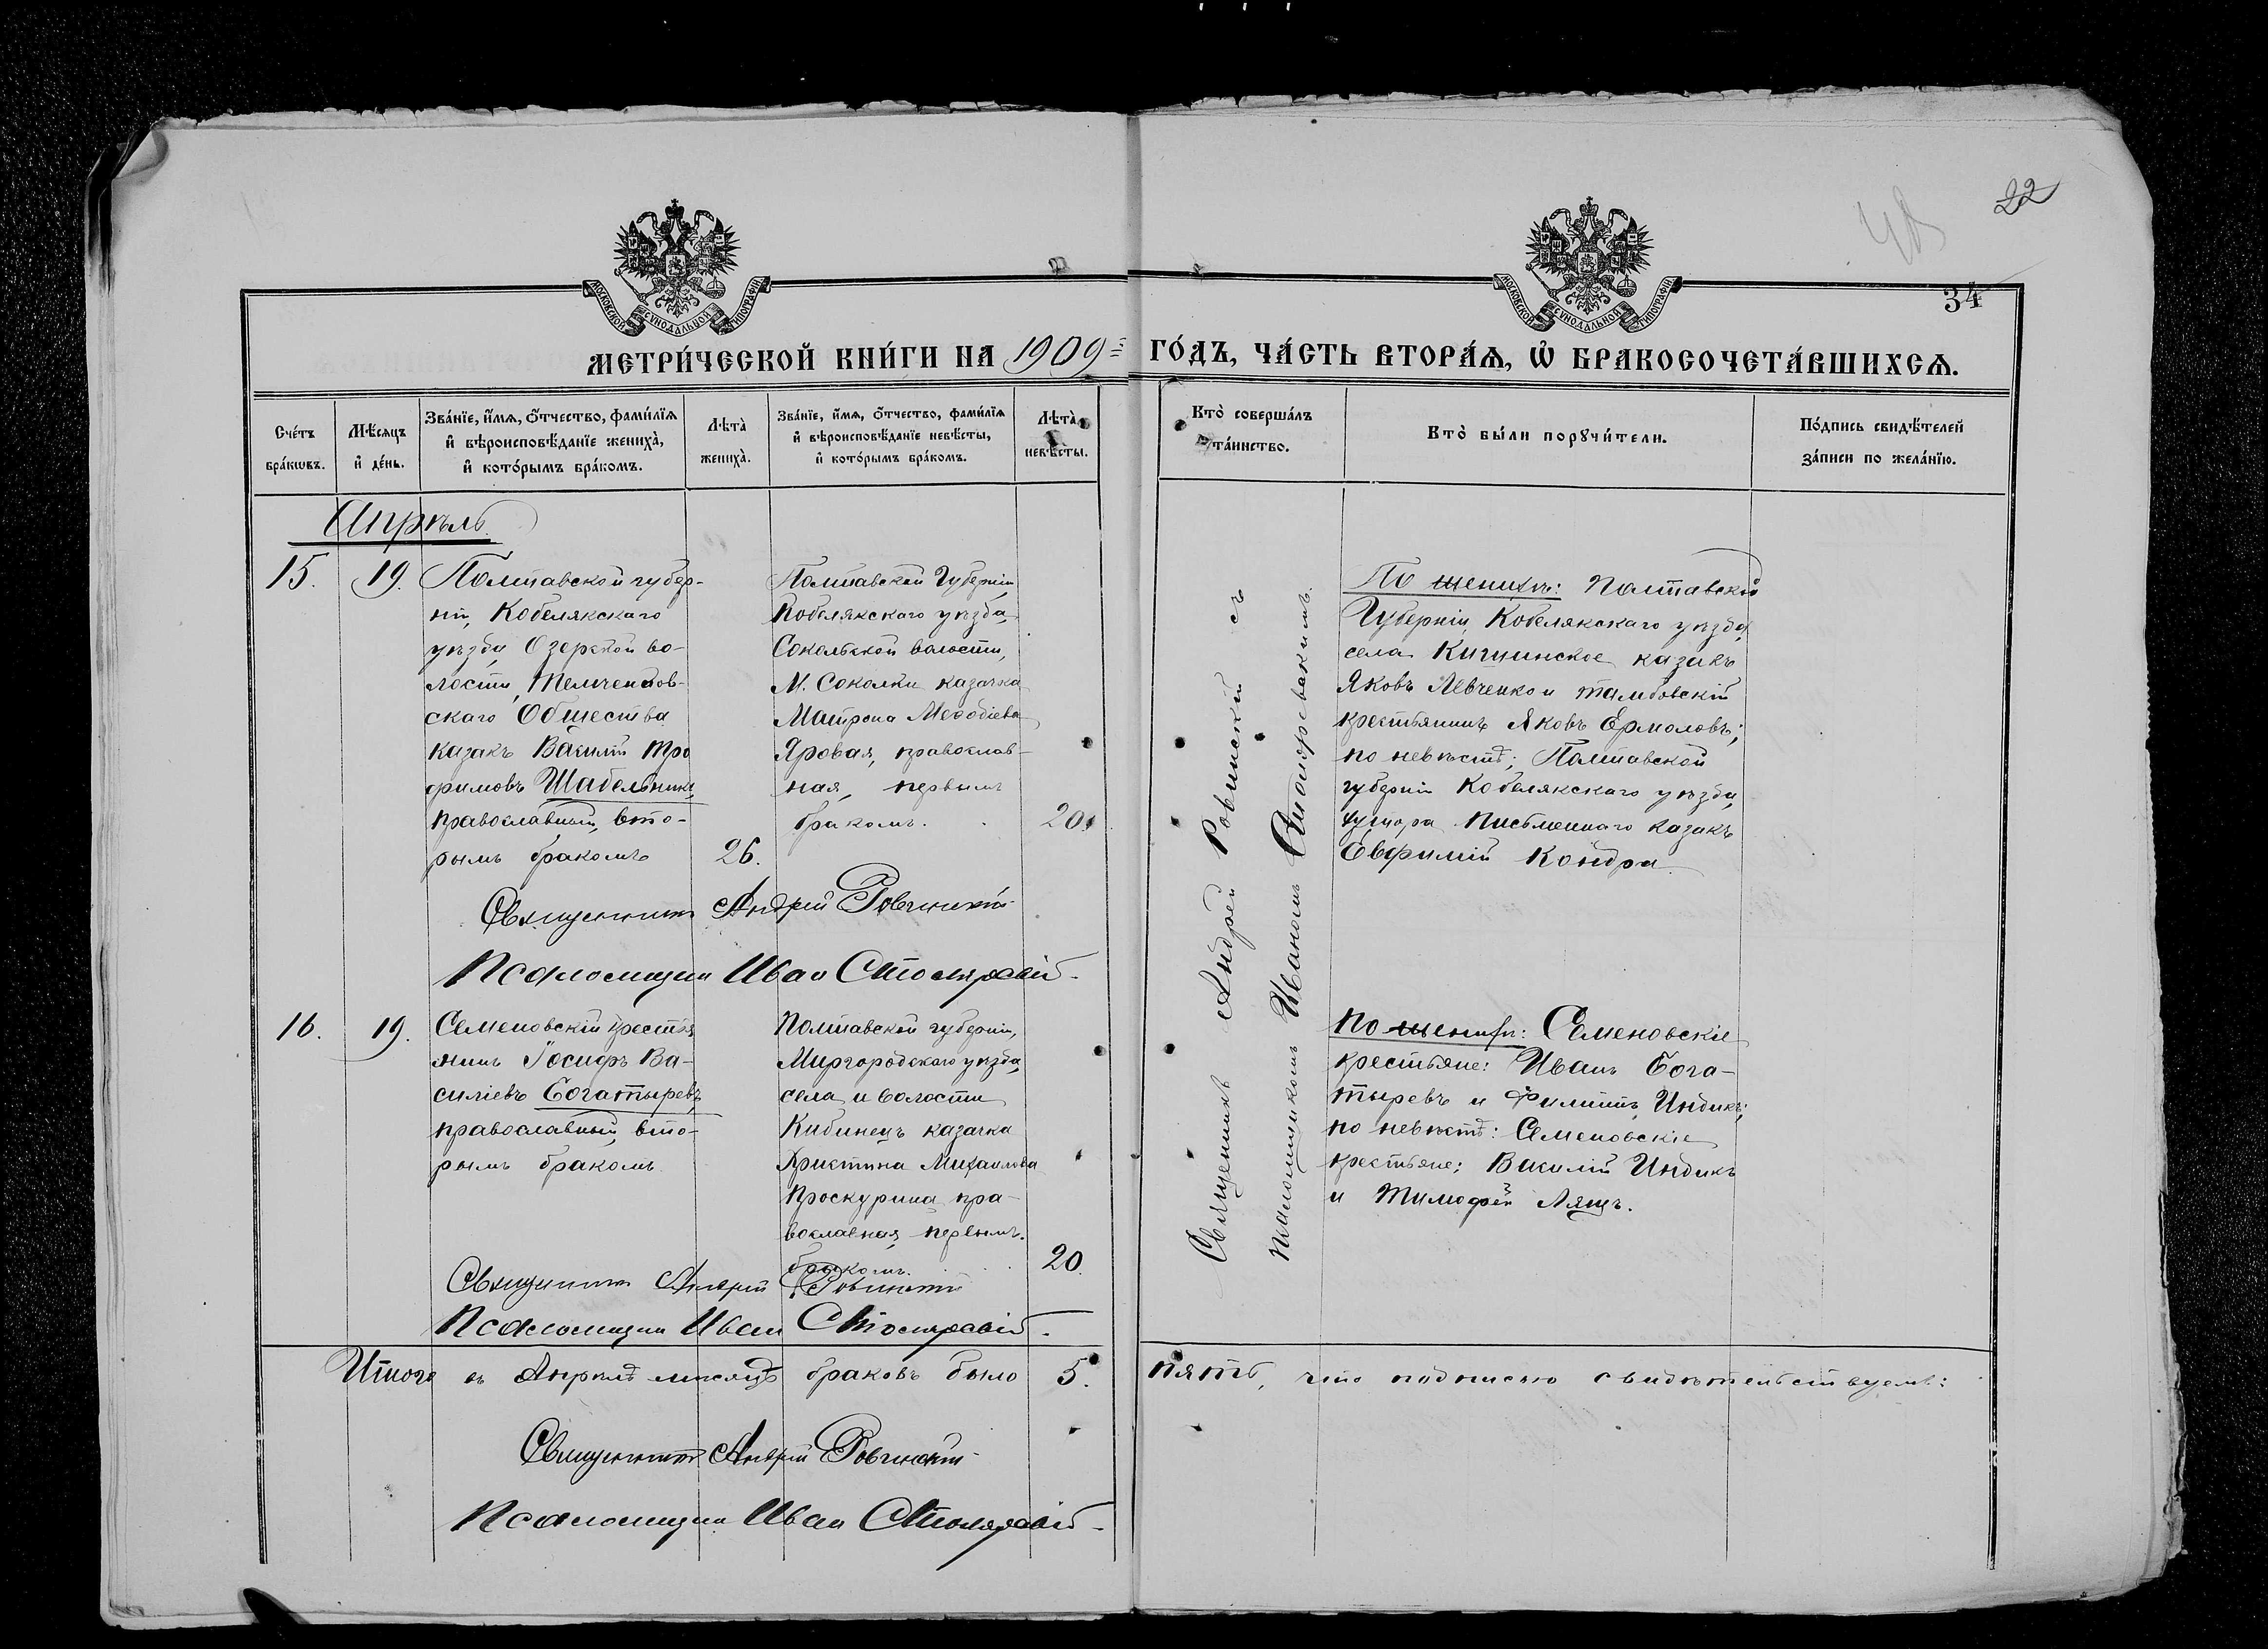 22
34
МОСКОВСКОЙ СѴНОДАЛЬНОЙ ТИПОГРАФІИ
МОСКОВСКОЙ СѴНОДАЛЬНОЙ ТИПОГРАФІИ
МЕТРИ́ЧЕСКОЙ КНИ́ГИ НА 1909 ГО́ДЪ, ЧА́СТЬ ВТОРА́Ѧ, Ѡ҆ БРАКОСОЧЕТА́ВШИХСѦ.
Сче́тъ
бра́кѡвъ.
Мѣ́сяцъ
и҆ де́нь.
Зва́нїе, и҆́мѧ, ѻ҆́тчество, фами́лїѧ
и҆ вѣроисповѣ́данїе жениха̀,
и҆ кото́рымъ бра́комъ.
Лѣ́та̀
жениха̀.
Зва́нїе, и҆́мѧ, ѻ҆́тчество, фами́лїѧ
и҆ вѣроисповѣ́данїе невѣ́сты,
и҆ кото́рымъ бра́комъ.
Лѣ́та̀
невѣ́сты.
Кто̀ соверша́лъ
та́инство.
Кто̀ бы́ли порꙋчи́тели.
По́дпись свидѣ́телей
за́писи по жела́нїю.
Апрѣль
15.
19.
Полтавской губер-
ніи, Кобелякскаго
уѣзда, Озерской во-
лости,
скаго Общества
казакъ Василій Тро
фимовъ Шабельникъ,
православный, вто-
рымъ бракомъ
26.
Полтавской Губерніи
Кобелякскаго уѣзда,
Сокольской волости,
М. Соколки казачка
Матрона Меѳодіева
Яровая, православ-
ная, первымъ
бракомъ.
20.
Священникъ Андрей Ровинскій
съ
Псаломщикомъ Иваномъ
По женихѣ: Полтавской
Губерніи, Кобелякскаго уѣзда,
села казакъ
Яковъ Левченко и тамбовскій
крестьянинъ Яковъ Ермоловъ;
по невѣстѣ; Полтавской
губерніи Кобелякскаго уѣзда,
хутора Письменнаго казакъ
Евфимій Кондра.
Священникъ Андрей Ровинскій
Псаломщикъ Иван
16.
19.
Семеновскій крестья
нинъ Іосифъ Ва-
силіевъ Богатыревъ,
православный, вто-
рымъ бракомъ
Полтавской губерніи,
Миргородскаго уѣзда,
села и волости
Кибинецъ казачка
Христина Михаилова
Проскурина пра-
вославная, первымъ
бракомъ.
20.
По женихѣ: Семеновскіе
крестьяне: Иванъ Бога-
тыревъ и Филиппъ Индикъ;
по невѣстѣ: Семеновскіе
крестьяне: Василій Индикъ
и Тимофей Лящъ.
Священникъ Андрей Ровинскій
Псаломщикъ Иван
Итого въ Апрѣлѣ мѣсяцѣ браковъ было 5. пять, что подписью свидѣтельствуемъ:
Священникъ Андрей Ровинскій
Псаломщикъ Иван